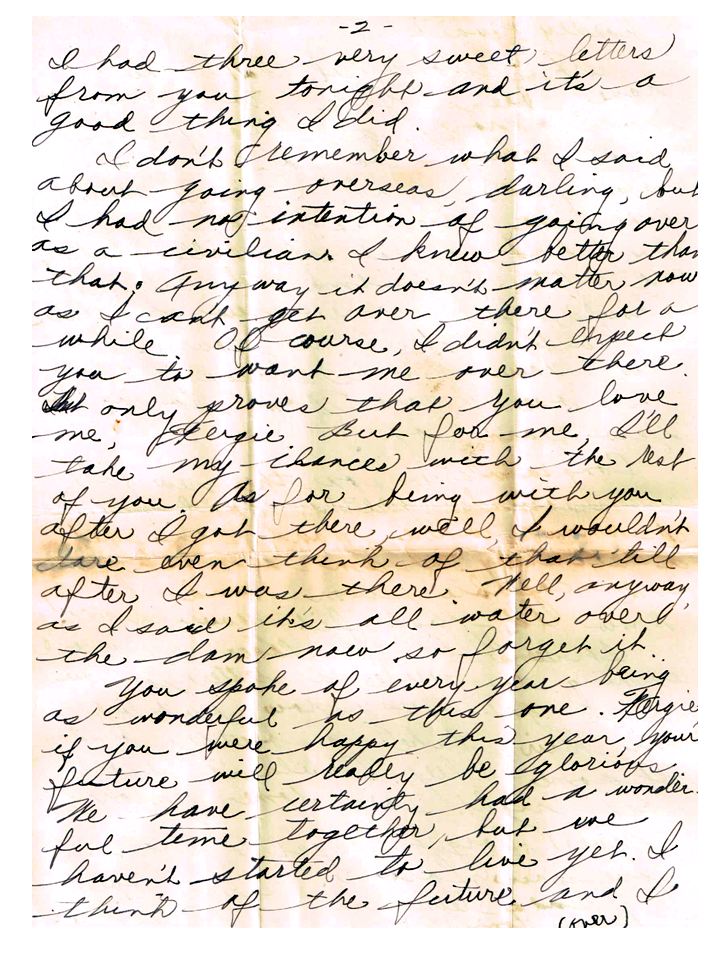 -2-
I had three very sweet letters
from you tonight and it's a
good thing I did.
I don't remember what I said
about going overseas, darling, but
I had no intention of going over
as a civilian. I knew better than
that. Anyway it doesn't matter now
as I can't get over there for a
while. Of course, I didn't expect
you to want me over there.
It only proves that you love
me, Fergie. But for me, I'll
take my chances with the rest
of you. As for being with you
after I got there, well, I wouldn't
dare even think of that till
after I was there. Well, anyway,
as I said it's all water over
the dam now so forget it.
You spoke of every year being
as wonderful as this one. Fergie
if you were happy this year your
future will really be glorious.
We have certainly had a wonder-
ful time together, but we
haven't started to live yet. I
think of the future and I
(over)